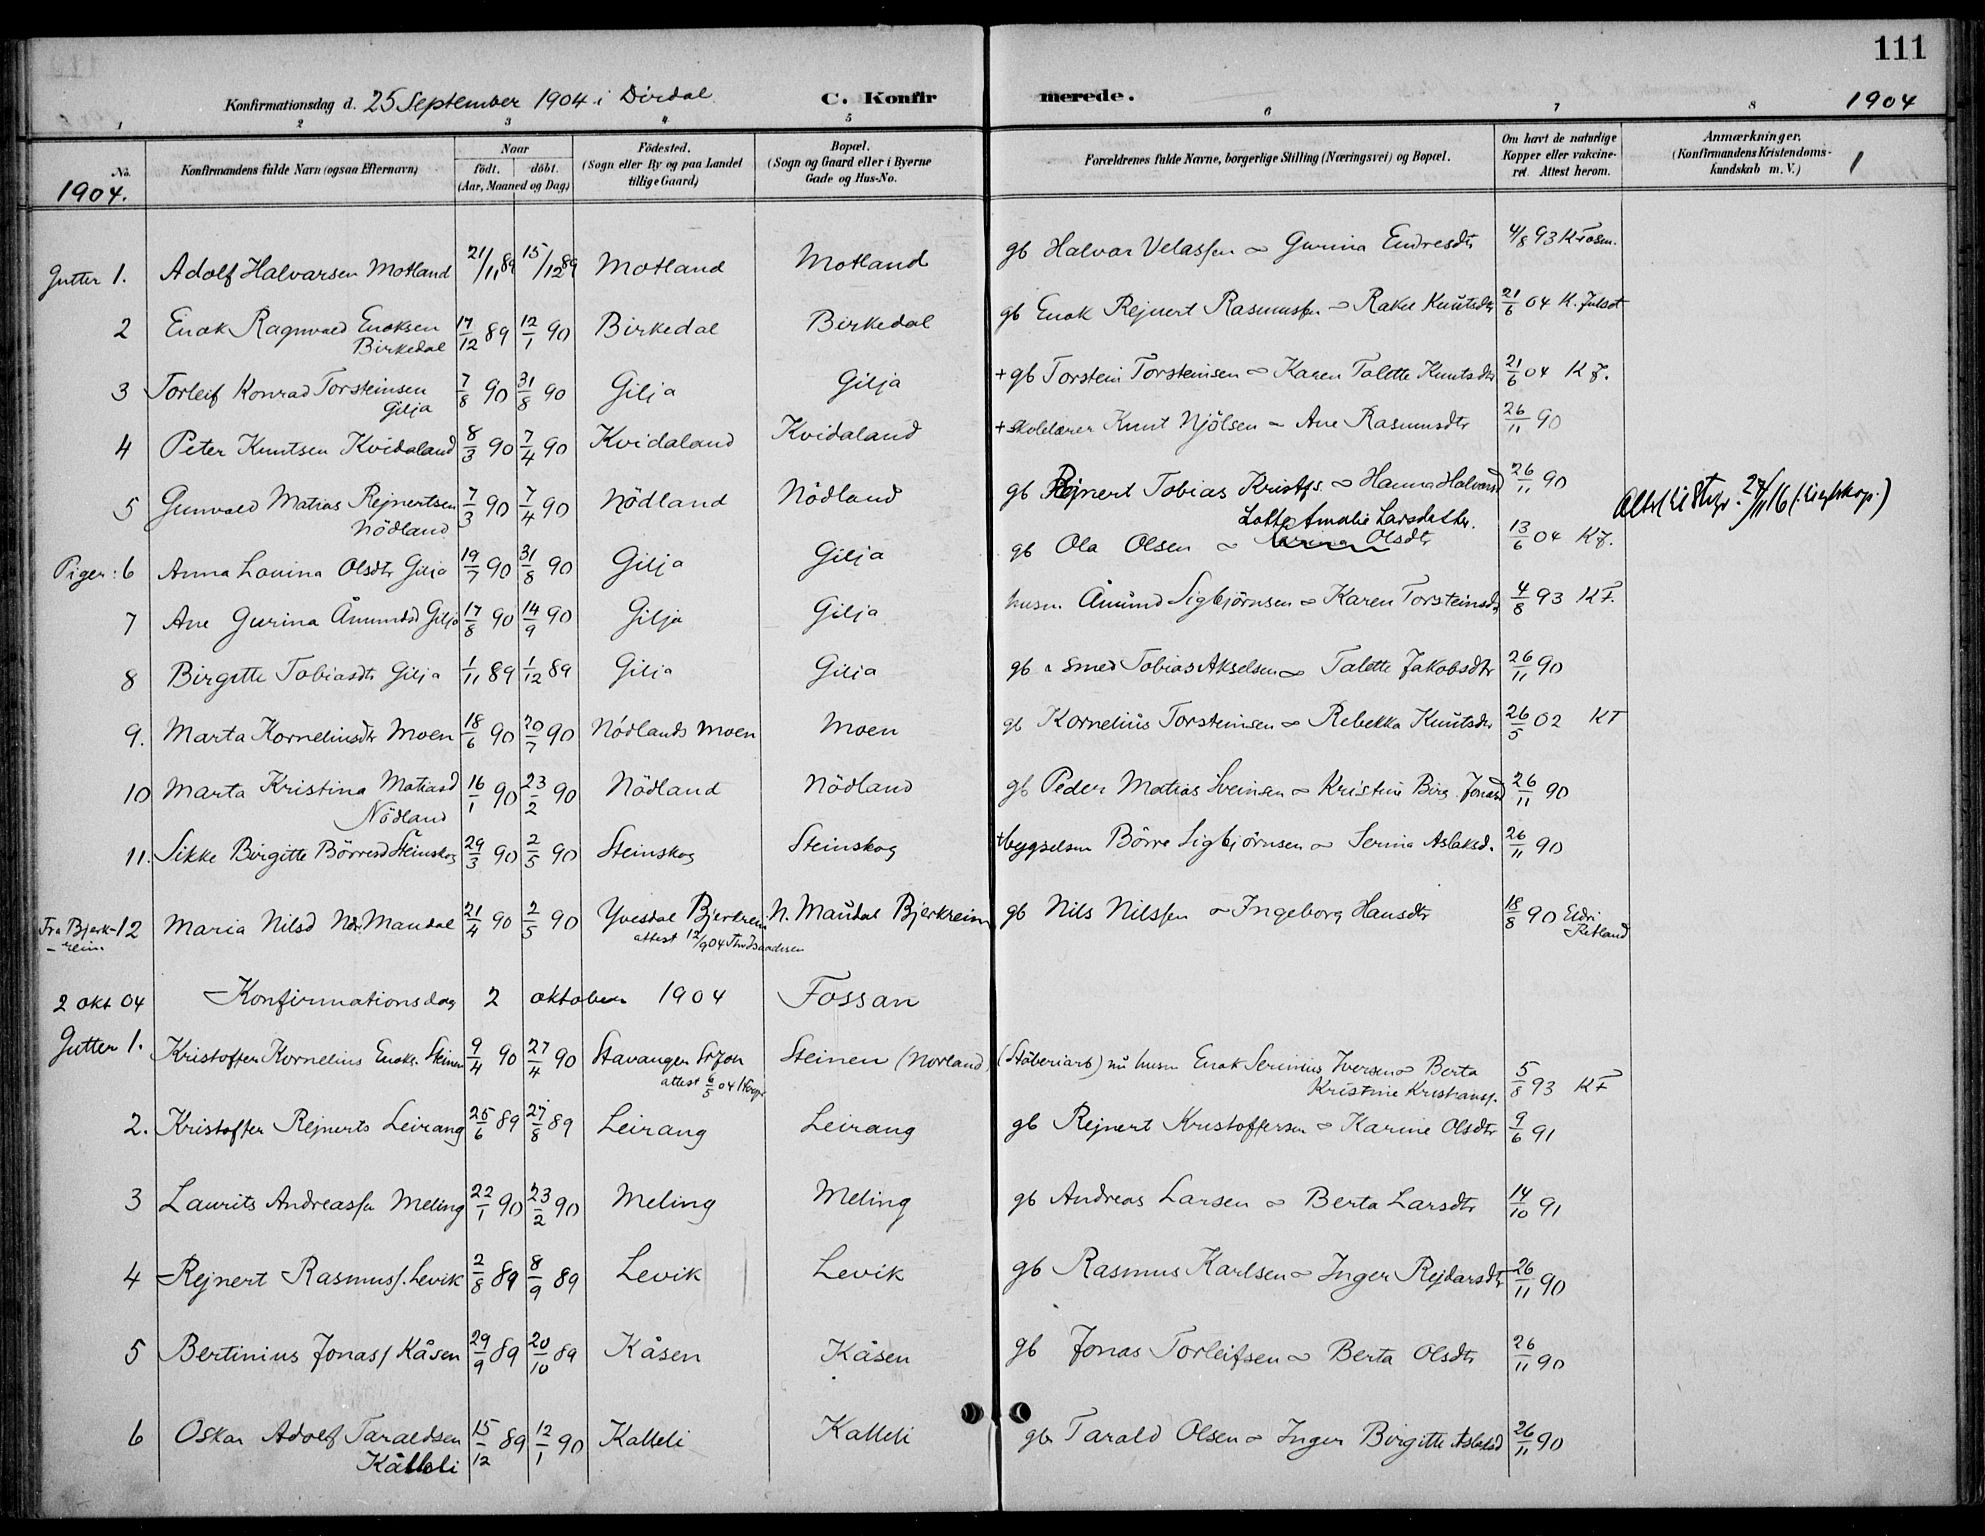 111
Konfirmationsdag d. 25 September 1904 i Dirdal
C. Konfirmerede.
1904
1 2 3 4 5 6 7 8
No. Konfirmandens fulde Navn (ogsaa Efternavn) Naar født. døbt. (Aar, Maaned og Dag) Fødested. (Sogn eller By og paa Landet tillige Gaard) Bopæl. (Sogn og Gaard eller i Byerne Gade og Hus-No. Forældrenes fulde Navne, borgerlige Stilling (Næringsvei) og Bopæl. Om havt de naturlige Kopper eller vakcineret. Attest herom. Anmærkninger. (Konfirmandens Kristendomskundskab m. V.) 1
1904.
Gutter 1. Adolf Halvarsen Motland 21/11 89 15/12 89 Motland Motland gb Halvar Velassen ∞ Gurina Endresdtr 4/8 93 K Fosm.
2 Enok Ragnvald Enoksen Birkedal 17/12 89 12/1 90 Birkedal Birkedal gb Enok Rejnert Rasmussen ∞ Rakel Knutsdtr 21/6 04 K.
3 Torleif Konrad Torsteinsen Gilja 7/8 90 31/8 90 Gilja Gilja + gb Torstein Torsteinsen ∞ Karen Talette Knutsdtr 21/6 04 K J.
4 Peter Knutsen Kvidaland 8/3 90 7/4 90 Kvidaland Kvidaland + skolelærer Knut Njölsen ∞ Ane Rasmusdtr 26/11 90
5 Gunvald Matias Rejnertsen Nödland 7/3 90 7/4 90 Nödland Nödland gb Rejnert Tobias Kristfs. ∞ Hanna Halvarsd 26/11 90
Piger: 6 Anna Lovina Olsdtr Gilja 19/7 90 31/8 90 Gilja Gilja gb Ola Olsen ∞ Lotte Amalie Larsdatter. Olsdtr 13/6 04 K J. 27/11 16
7 Ane Gurina Åmundsd Gilja 17/8 90 14/9 90 Gilja Gilja husm. Åmund Sigbjörnsen ∞ Karen Torsteinsd 4/8 93 K F.
8 Birgitte Tobiasdtr Gilja 1/11 89 1/12 89 Gilja Gilja gb & smed Tobias Akselsen ∞ Talette Jakobsdtr 26/11 90
9. Marta Kornelinsdtr Moen 18/6 90 20/7 90 Nödlands Moen Moen gb Kornelius Torsteinsen ∞ Rebekka Knutsdtr 26/5 02 K F
10 Marta Kristina Matiasd Nödland 16/1 90 23/2 90 Nödland Nödland gb Peder Matias Sveinsen ∞ Kristine Birg. Jonasd 26/11 90
11. Sikke Birgitte Börresd Steinskog 29/3 90 2/5 90 Steinskog Steinskog + bygselm Börre Sigbjörnsen ∞ Serina Aslaksd. 26/11 90
Fra Bjerkreim 12 Maria Nilsd Ndr. Maudal 21/4 90 2/5 90 Yvesdal Bjerkreim attest 12/9 04 N. Maudal Bjerkreim gb Nils Nilssen ∞ Ingeborg Hansdtr 18/8 90 Eldri Retland
2 Okt 04 Konfirmationsdag 2 oktober 1904 Fossan
Gutter 1. Kristoffer Kornelius Enoks. Steinen 9/4 90 27/4 90 Stavanger St Joh attest 6/5 04 Steinen (Norland) (Støberiarb) nu husm Enok Serinius Iversen ∞ Berta Kristine Kristiansd. 5/8 93 K F
2. Kristoffer Rejnerts Leirang 25/6 89 27/8 89 Leirang Leirang gb Rejnert Kristoffersen ∞ Karine Olsdtr 9/6 91
3 Laurits Andreassen Meling 22/1 90 23/2 90 Meling Meling gb Andreas Larsen ∞ Berta Larsdtr 14/10 91
4 Rejnert Rasmuss. Levik 2/8 89 8/9 89 Levik Levik gb Rasmus Karlsen ∞ Inger Rejdarsdtr 26/11 90
5 Bertinius Jonass Kåsen 29/9 89 20/10 89 Kåsen Kåsen gb Jonas Torleifsen ∞ Berta Olsdtr 26/11 90
6 Oskar Adolf Taraldsen Kalleli 15/12 89 12/1 90 Kalleli Kalleli gb Tarald Olsen ∞ Inger Birgitte Aslaksd 26/11 90